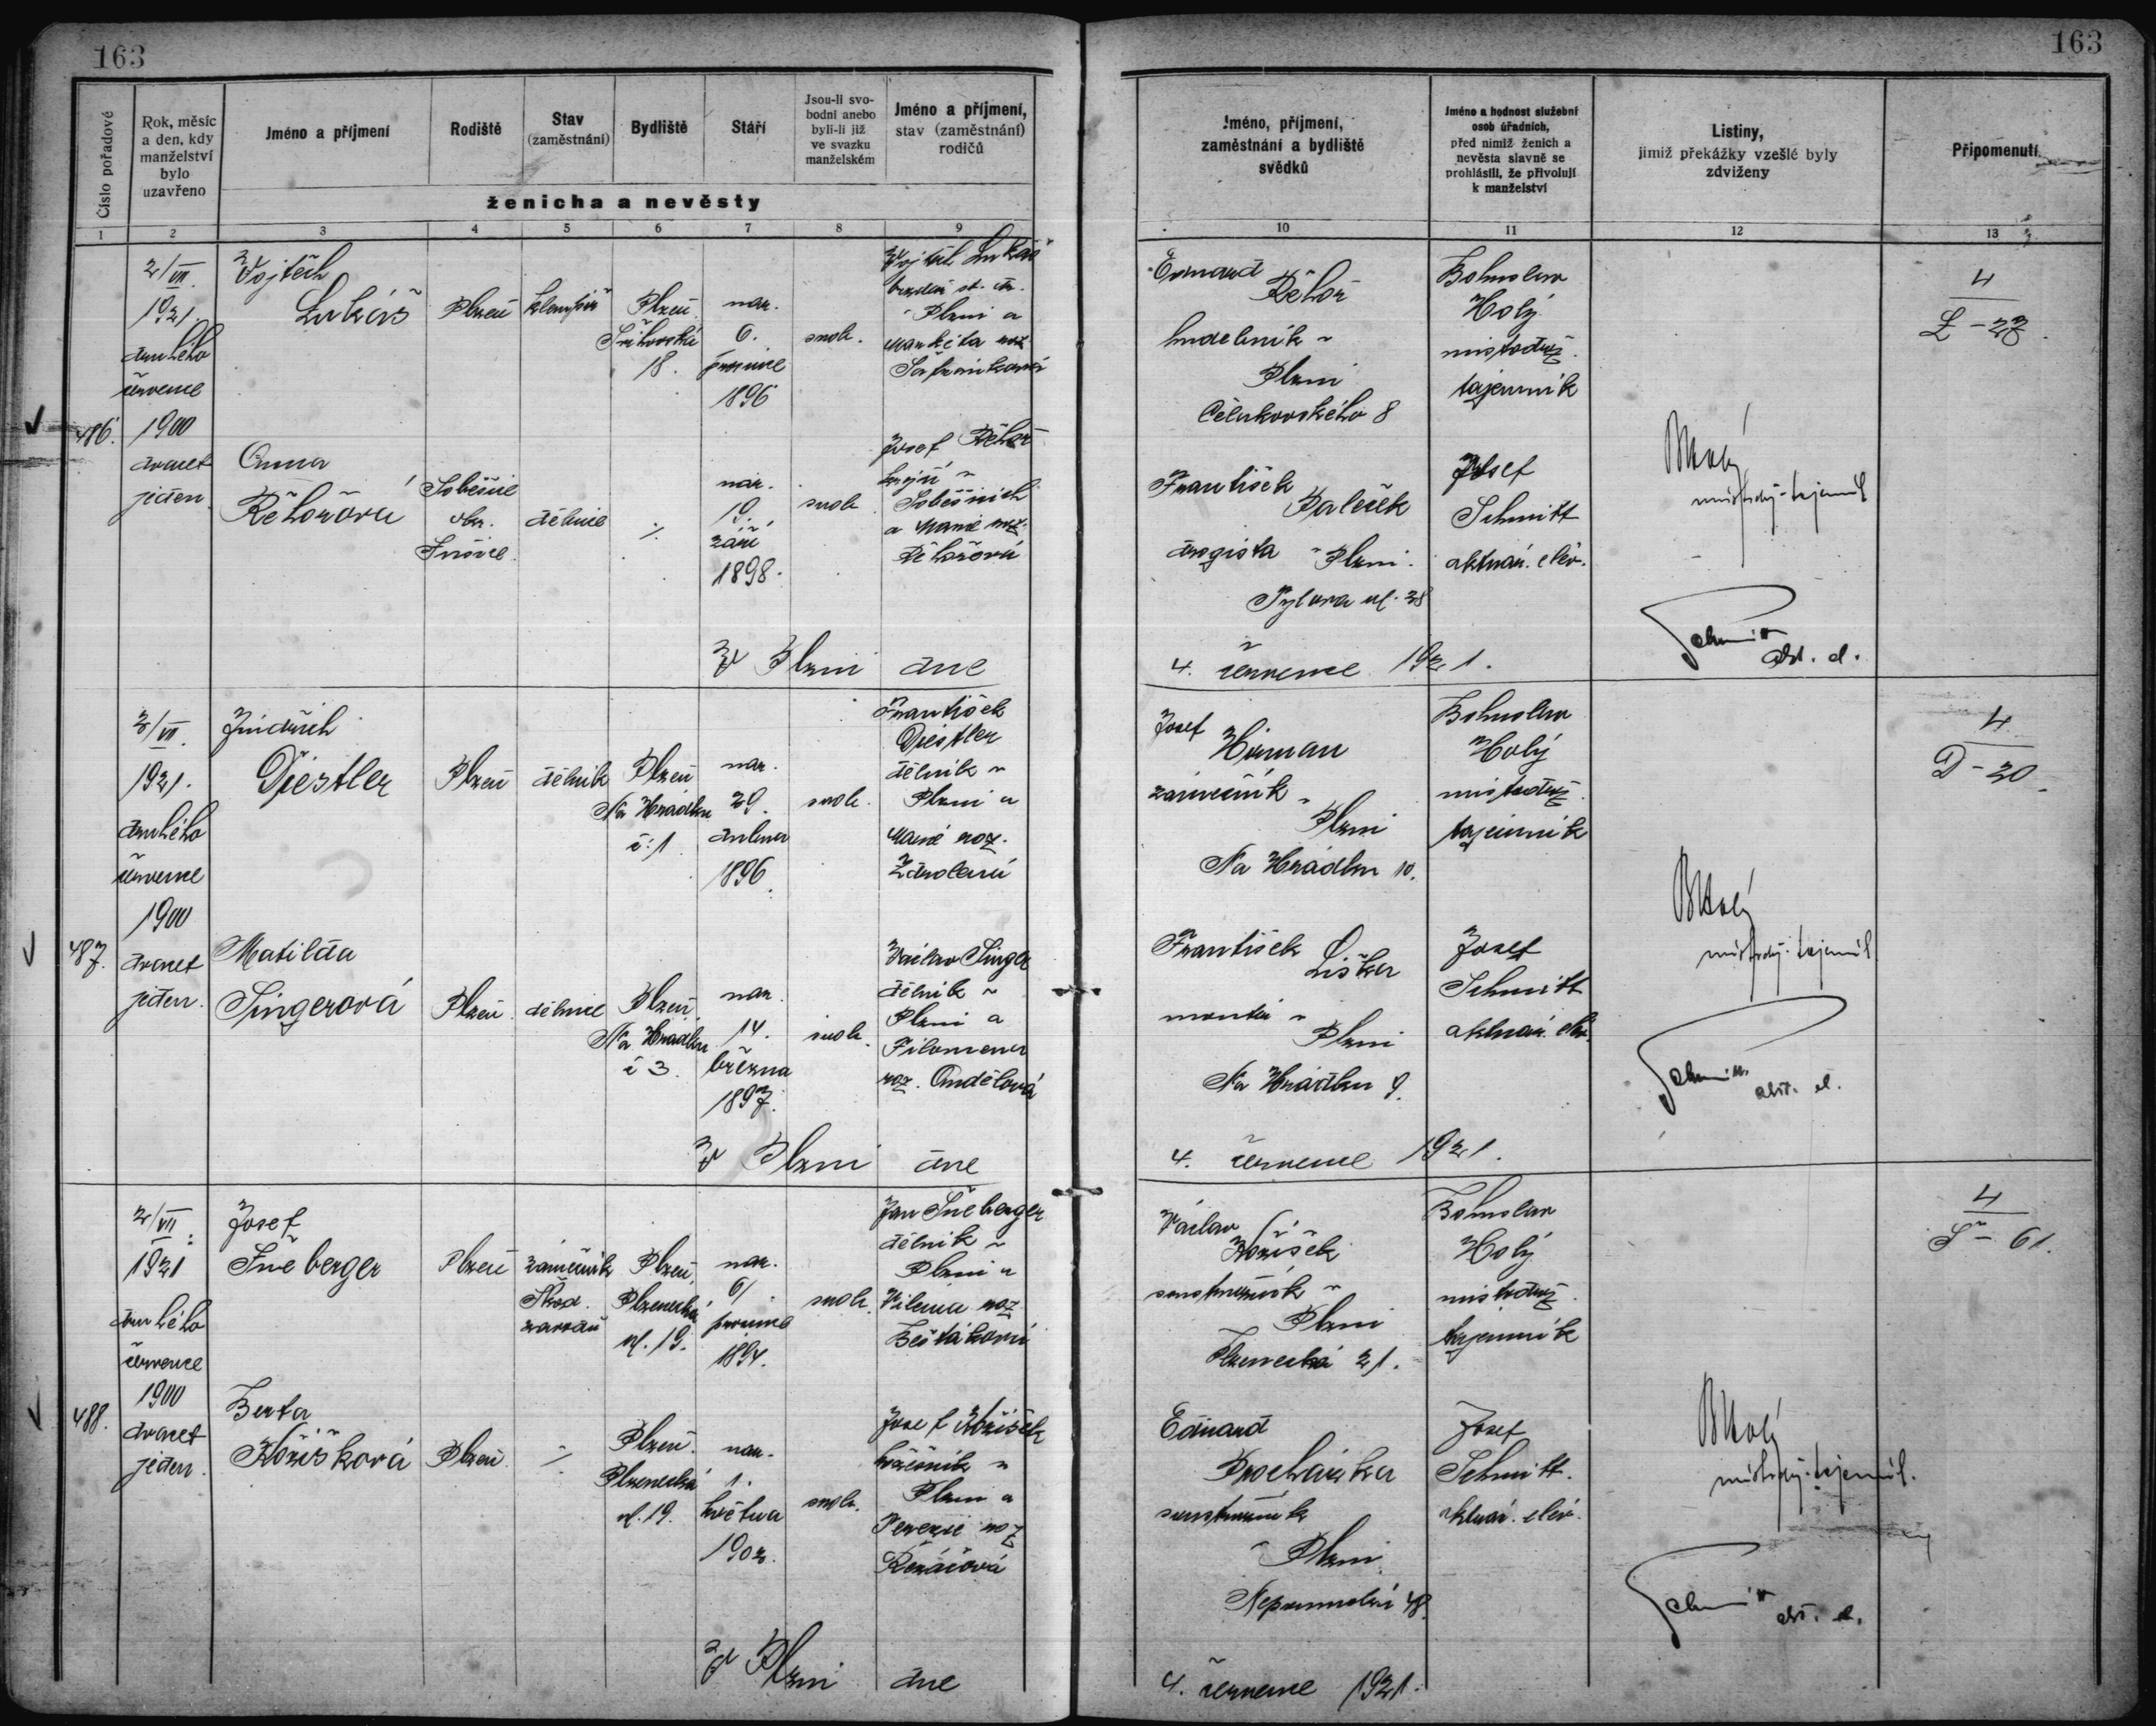 163
163
Číslo pořadové
Rok, měsíc a den, kdy manželství bylo uzavřeno
Jméno a příjmení
Rodiště
Stav (zaměstnání)
Bydliště
Stáří
Jsou-li svobodni anebo byli-li již ve svazku manželském
Jméno a příjmení, stav (zaměstnání) rodičů
ženicha a nevěsty
Jméno, příjmení, zaměstnání a bydliště svědků
Jméno a hodnost služební osob úřadních, před nimiž ženich a nevěsta slavně se prohlásili, že přivolují k manželství
Listiny, jimiž překážky vzešlé byly zdviženy
Připomenutí
1 2 3 4 5 6 7 8 9 10 11 12 13
486.
2/VII.
1921.
druhého
července
1900
dvacet
jeden
Vojtěch
Lukáš
Plzeň
klempíř
Plzeň
18.
nar.
6.
prosince
1896
svob.
Vojtěch Lukáš
Plzni a
Markéta roz.
Šafránková
Anna
Řehořová
Soběšice
okr.
Sušice
dělnice
nar.
19.
září
1898.
svob.
Josef Řehoř
Soběšicích
a Marie roz.
Řehořová
Eduard
Řehoř
hudebník v
Plzni
Čelakovského 8
František
Paleček
drogista v Plzni.
Tylova ul. 28
Bohuslav
Holý
místodrž.
tajemník
Josef
Schmitt
aktuár. elév.
BHolý
místodrž. tajemník
Schmitt
akt. el.
4
L - 27.
V Plzni dne
4. července 1921.
487.
2/VII.
1921.
druhého
července
1900
dvacet
jeden.
Jindřich
Diestler
Plzeň
dělník
Plzeň
Na Hrádku
č. 1
nar.
29.
dubna
1896.
svob.
František
Diestler
dělník v
Plzni a
Marie roz.
Matilda
Singerová
Plzeň
dělnice
Plzeň
Na Hrádku
č 3.
nar.
14.
března
1897.
svob.
Václav Singer
dělník v
Plzni a
Filomena
roz. Andělová
Josef
zámečník v
Plzni
Na Hrádku 10.
František
Liška
montér v
Plzni
Na Hrádku 9.
Bohuslav
Holý
místodrž.
tajemník
Josef
Schmitt
aktuár. elév.
BHolý
místodrž. tajemník
Schmitt
akt. el.
4
D - 20.
V Plzni dne
4. července 1921.
488.
2/VII.
1921
druhého
července
1900
dvacet
jeden.
Josef
Šneberger
Plzeň
zámečník
Škod.
závodů
Plzeň,
Plzenecká
ul. 19.
nar.
6.
prosince
1894.
svob.
Jan Šneberger
dělník v
Plzni a
roz.
Berta
Kožíšková
Plzeň
Plzeň.
Plzenecká
ul. 19.
nar.
1.
května
1902.
svob.
Josef Kožíšek
v
Plzni a
Terezie roz.
Řezáčová
Václav
Kožíšek
soustružník v
Plzni
Plzenecká 21.
Eduard
Procházka
soustružník
v Plzni
Nepomucká 48.
Bohuslav
Holý
místodrž.
tajemník
Josef
Schmitt.
aktuár. elév.
BHolý
místodrž. tajemník.
Schmitt
akt. el.
4
Š - 61.
V Plzni dne
4. července 1921.